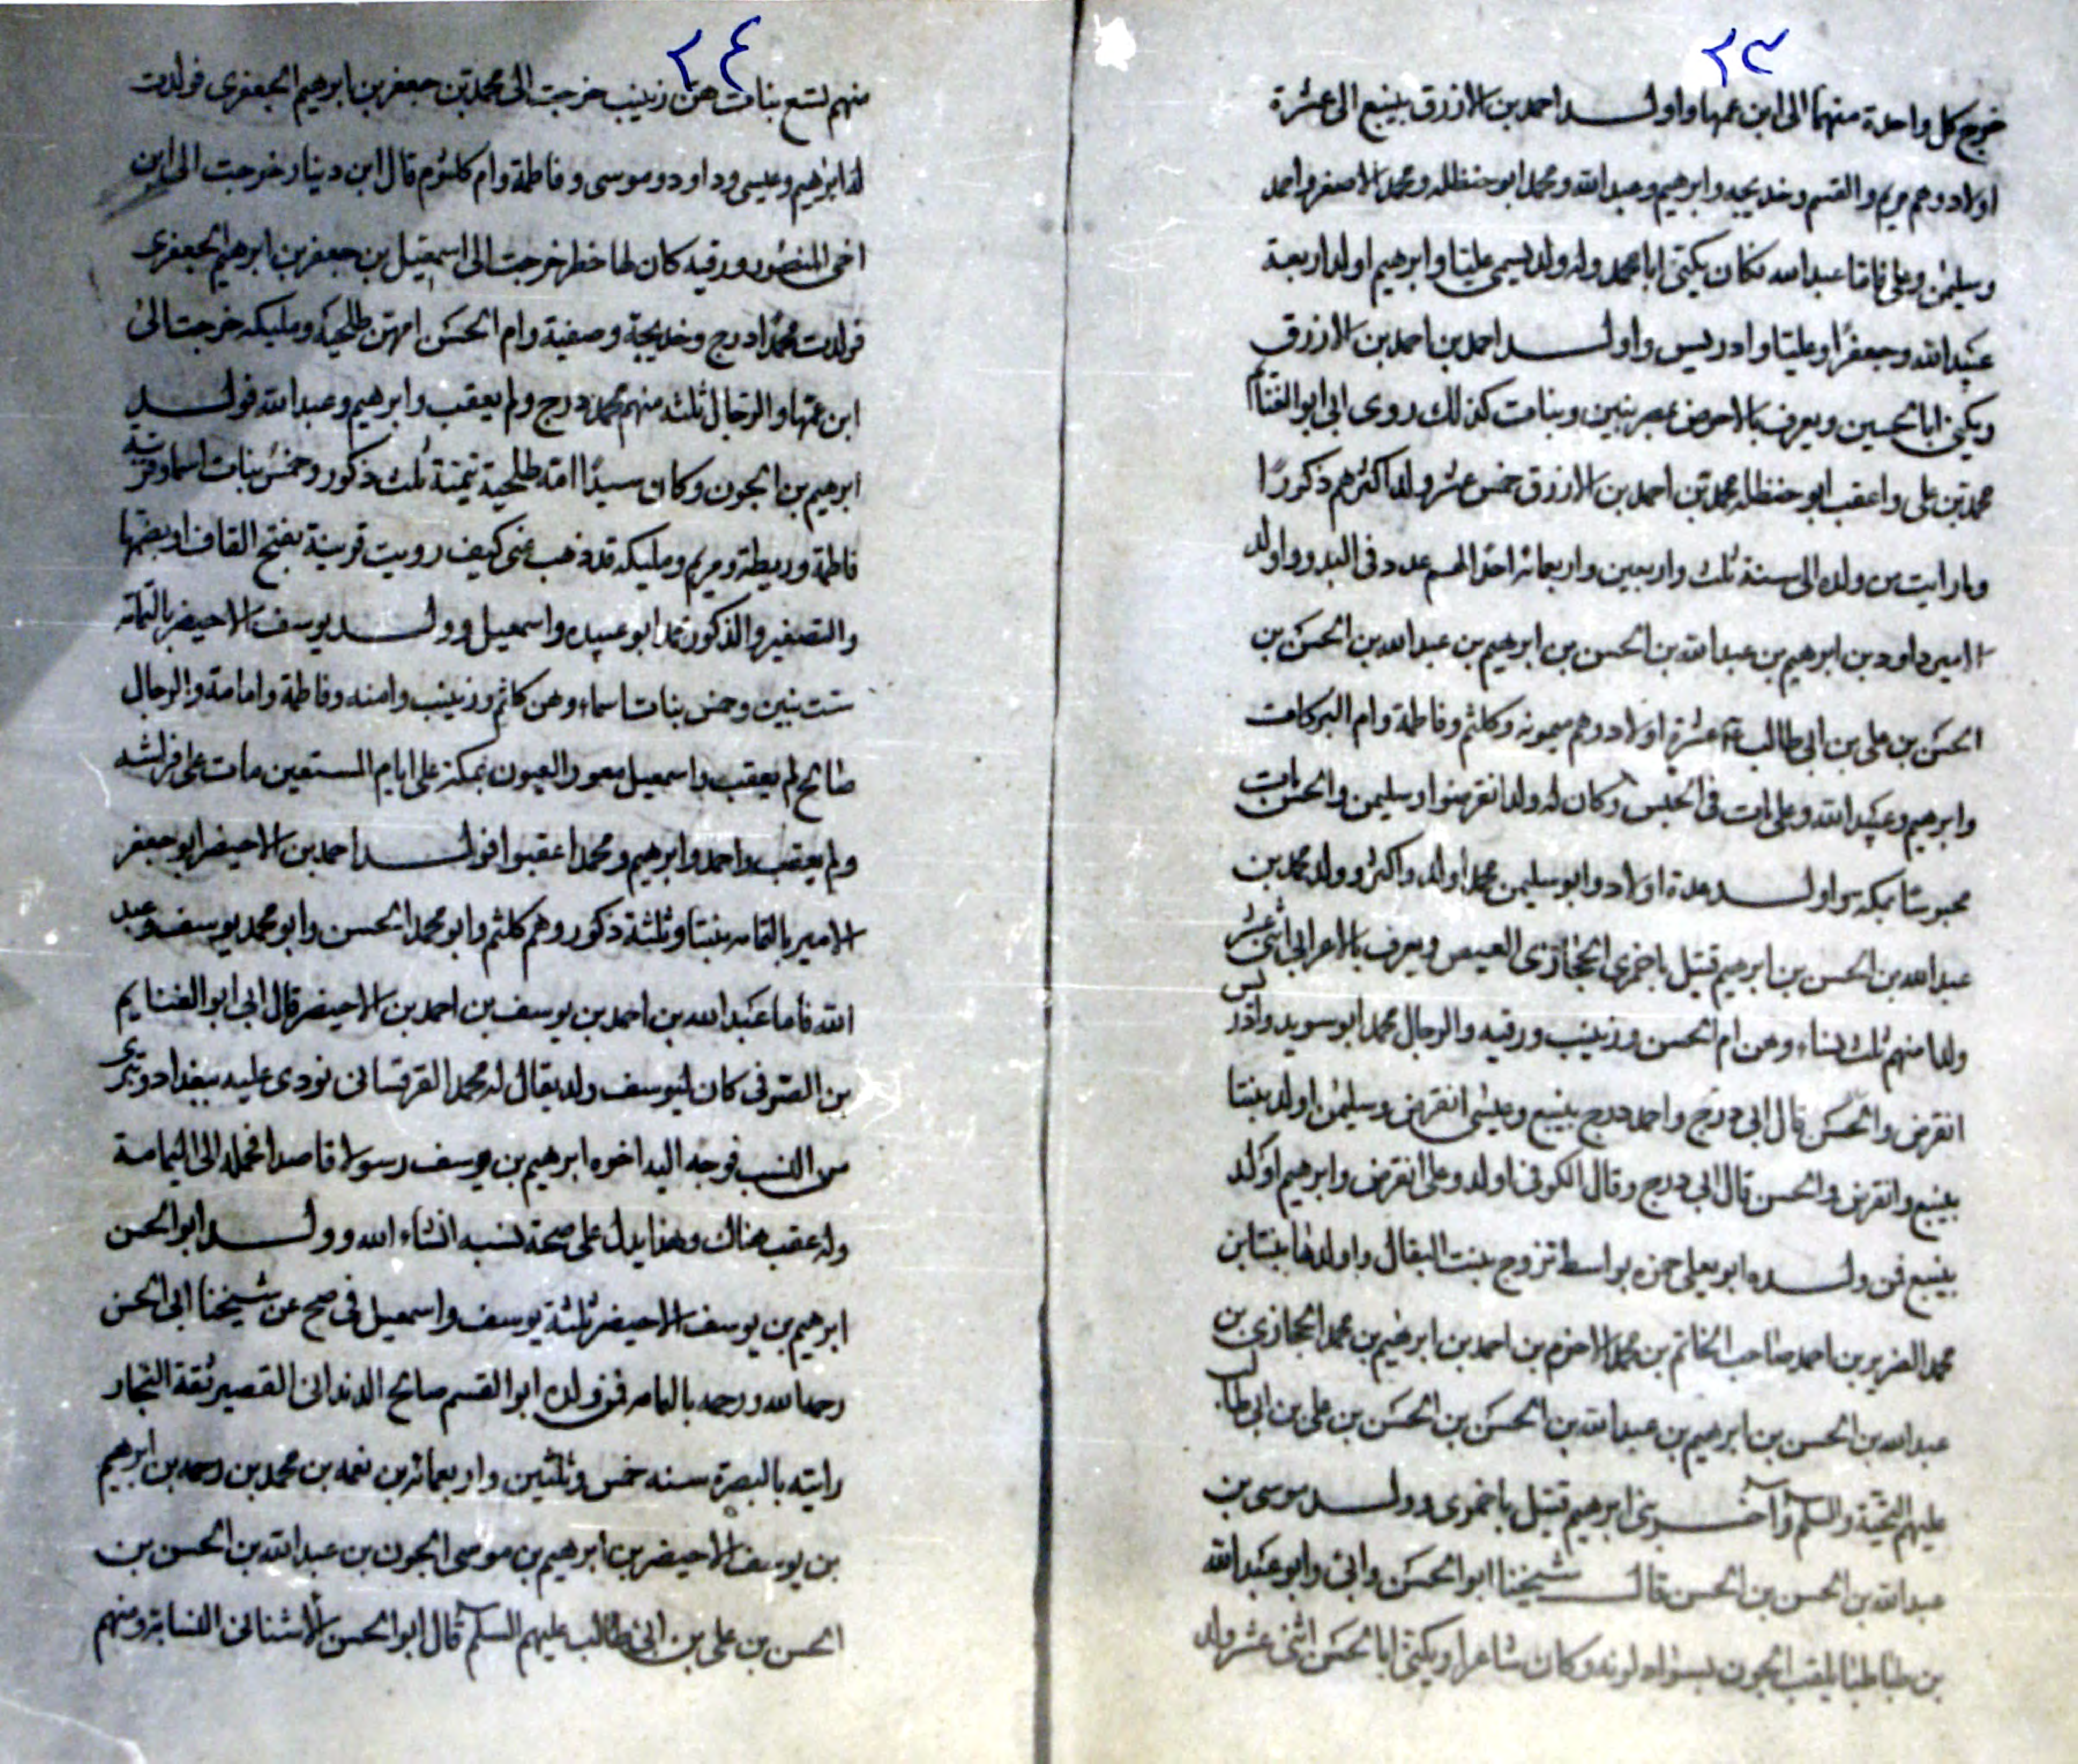 ٢٣
خرج كل واحدة منهما الى ابن عمها واولد احمد بن الازرق بينبع الى عشرة
اولاد وهم مريم والقسم وخديجه وابرهيم وعبد الله ومحمد ابو حنظله ومحمد الاصغر واحمد
وسليمن وعلى فاما عبد الله فكان يكنى ابا محمد وله ولد يسمى عليا وابرهيم اولد اربعة
عبد الله وجعفرا وعليا وادريس واولد احمد بن احمد بن الازرق
ويكنى ابا الحسين ويعرف بالاحوض بنين وبنات كذلك روى ابى ابو الغنائم
محمد بن على واعقب ابو حنظله محمد بن احمد بن الازرق خمس عشر ولدا اكثرهم ذكورا
وما رايت من ولده الى سنة ثلث واربعين واربعمائه احدا لهم عدد فى البدو واولد
الامير داود بن ابرهيم بن عبد الله بن الحسن بن ابرهيم بن عبد الله بن الحسن بن
الحسن بن على بن ابى طالب عشرة اولاد وهم ميمونه وكلثم وفاطمة وام البركات
وابرهيم وعبد الله وعلى مات فى الحبس وكان له ولد انقرضوا وسليمن والحسن مات
محبوسا بمكه واولد عدة اولاد وابو سليمن محمد اولد واكثر وولد محمد بن
عبد الله بن الحسن بن ابرهيم قتيل باخمرى الحجازى العيص ويعرف بالاعرابى اثنى عشر
ولدا منهم ثلث نساء وهن ام الحسن وزينب ورقيه والرجال محمد ابو سويد وادريس
انقرض والحسن قال ابى درج واحمد درج بينبع وعيسى انقرض وسليمن اولد بنتا
بينبع وانقرض والحسن قال ابى درج وقال الكوفى اولد وعلى انقرض وابرهيم اولد
بينبع فمن ولده ابو يعلى حمزه بواسط تزوج بنت البقال واولدها بنتا بن
محمد العزيز بن احمد صاحب الخاتم بن محمد الاخرم بن احمد بن ابرهيم بن محمد الحجازى بن
عبد الله بن الحسن بن ابرهيم بن عبد الله بن الحسن بن الحسن بن على بن ابى طالب
عليهم التحية والسلم وآخر بنى ابرهيم قتيل باخمرى وولد موسى بن
عبد الله بن الحسن بن الحسن قال شيخنا ابو الحسن وابى وابو عبد الله
بن طباطبا يلقب الجون لسواد لونه وكان شاعرا ويكنى ابا الحسن اثنى عشر ولد
٢٤
منهم تسع بنات هن زينب خرجت الى محمد بن جعفر بن ابرهيم الجعفرى فولدت
له ابرهيم وعيسى وداود وموسى وفاطمة وام كلثوم قال ابن دينار خرجت الى ابن
اخى المنصور ورقيه كان لها خطر خرجت الى اسمعيل بن جعفر بن ابرهيم الجعفرى
فولدت محمدا درج وخديجة وصفية وام الحسن امهن طلحية ومليكه خرجت الى
ابن عمها والرجال ثلثه منهم محمد درج ولم يعقب وابرهيم وعبد الله فولد
ابرهيم بن الجون وكان سيدا امه طلحية تيمية ثلث ذكور وخمس بنات اسماء قريبة
فاطمة وريطة ومريم ومليكه قد ذهب عنى كيف رويت قريبة بفتح القاف او بضمها
والتصغير والذكور محمد ابو عبيده واسمعيل وولد يوسف الاحيضر باليمامه
ست بنين وخمس بنات اسماء وهن كلثم وزينب وامنه وفاطمة وامامة والرجال
صالح لم يعقب واسمعيل معور العيون بمكة على ايام المستعين مات على فراشه
ولم يعقب واحمد وابرهيم ومحمد اعقبوا فولد احمد بن الاحيضر ابو جعفر
الامير باليمامه بنتا وثلثة ذكور وهم كلثم وابو محمد الحسن وابو محمد يوسف وعبد
الله فاما عبد الله بن احمد بن يوسف بن احمد بن الاحيضر قال ابى ابو الغنايم
بن الصوفى كان ليوسف ولد يقال له محمد القرقسانى نودى عليه ببغداد وتبرى
من النسب فوجه اليه اخوه ابرهيم بن يوسف رسولا قاصدا فحمله الى اليمامة
وله عقب هناك وهذا يدل على صحة نسبه انشاء الله وولد ابو الحسن
ابرهيم بن يوسف الاحيضر ثلثة يوسف واسمعيل فى صح عن شيخنا ابى الحسن
رحمه الله ورحمه باليمامه فمن ولده ابو القسم صالح الدندانى القصير ثقة التجار
رايته بالبصرة سنه خمس وثلثين واربعمائه بن نعمه بن محمد بن رحمه بن ابرهيم
بن يوسف الاحيضر بن ابرهيم بن موسى الجون بن عبد الله بن الحسن بن
الحسن بن على بن ابى طالب عليهم السلم قال ابو الحسن الاشنانى النسابه ومنهم